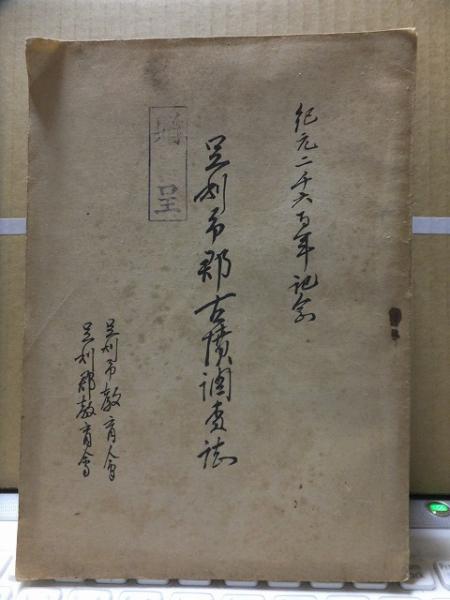 紀元二千六百年記念
足利市郡古墳調査誌
贈呈
足利市教育会
足利郡教育會